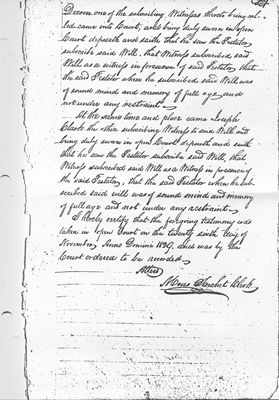 one of the subscribing Witnesses thereto being cal-
led came into Court, and being duly sworn in open
Court deposeth and saith that he saw the Testator
subscribe said Will, that Witness subscribed said
Will as a witness in presence of said Testator, that
the said Testator when he subscribed said Will was
of sound mind and memory of full age and
not under any restraint.
At the same time and place came Joseph
Clark the other subscribing Witness to said Will and
being duly sworn in open Court deposeth and saith
that he saw the Testator subscribe said Will, that
Witness subscribed said Will as a Witness in presence of
the said Testator, that the said Testator when he sub-
scribed said will was of sound mind and memory
of full age and not under any restraint.
I hereby certify that the foregoing testimony was
taken in open Court on the twenty sixth day of
November Anno Domini 1829, and was by the
Court ordered to be recorded.
Attest
Clerk